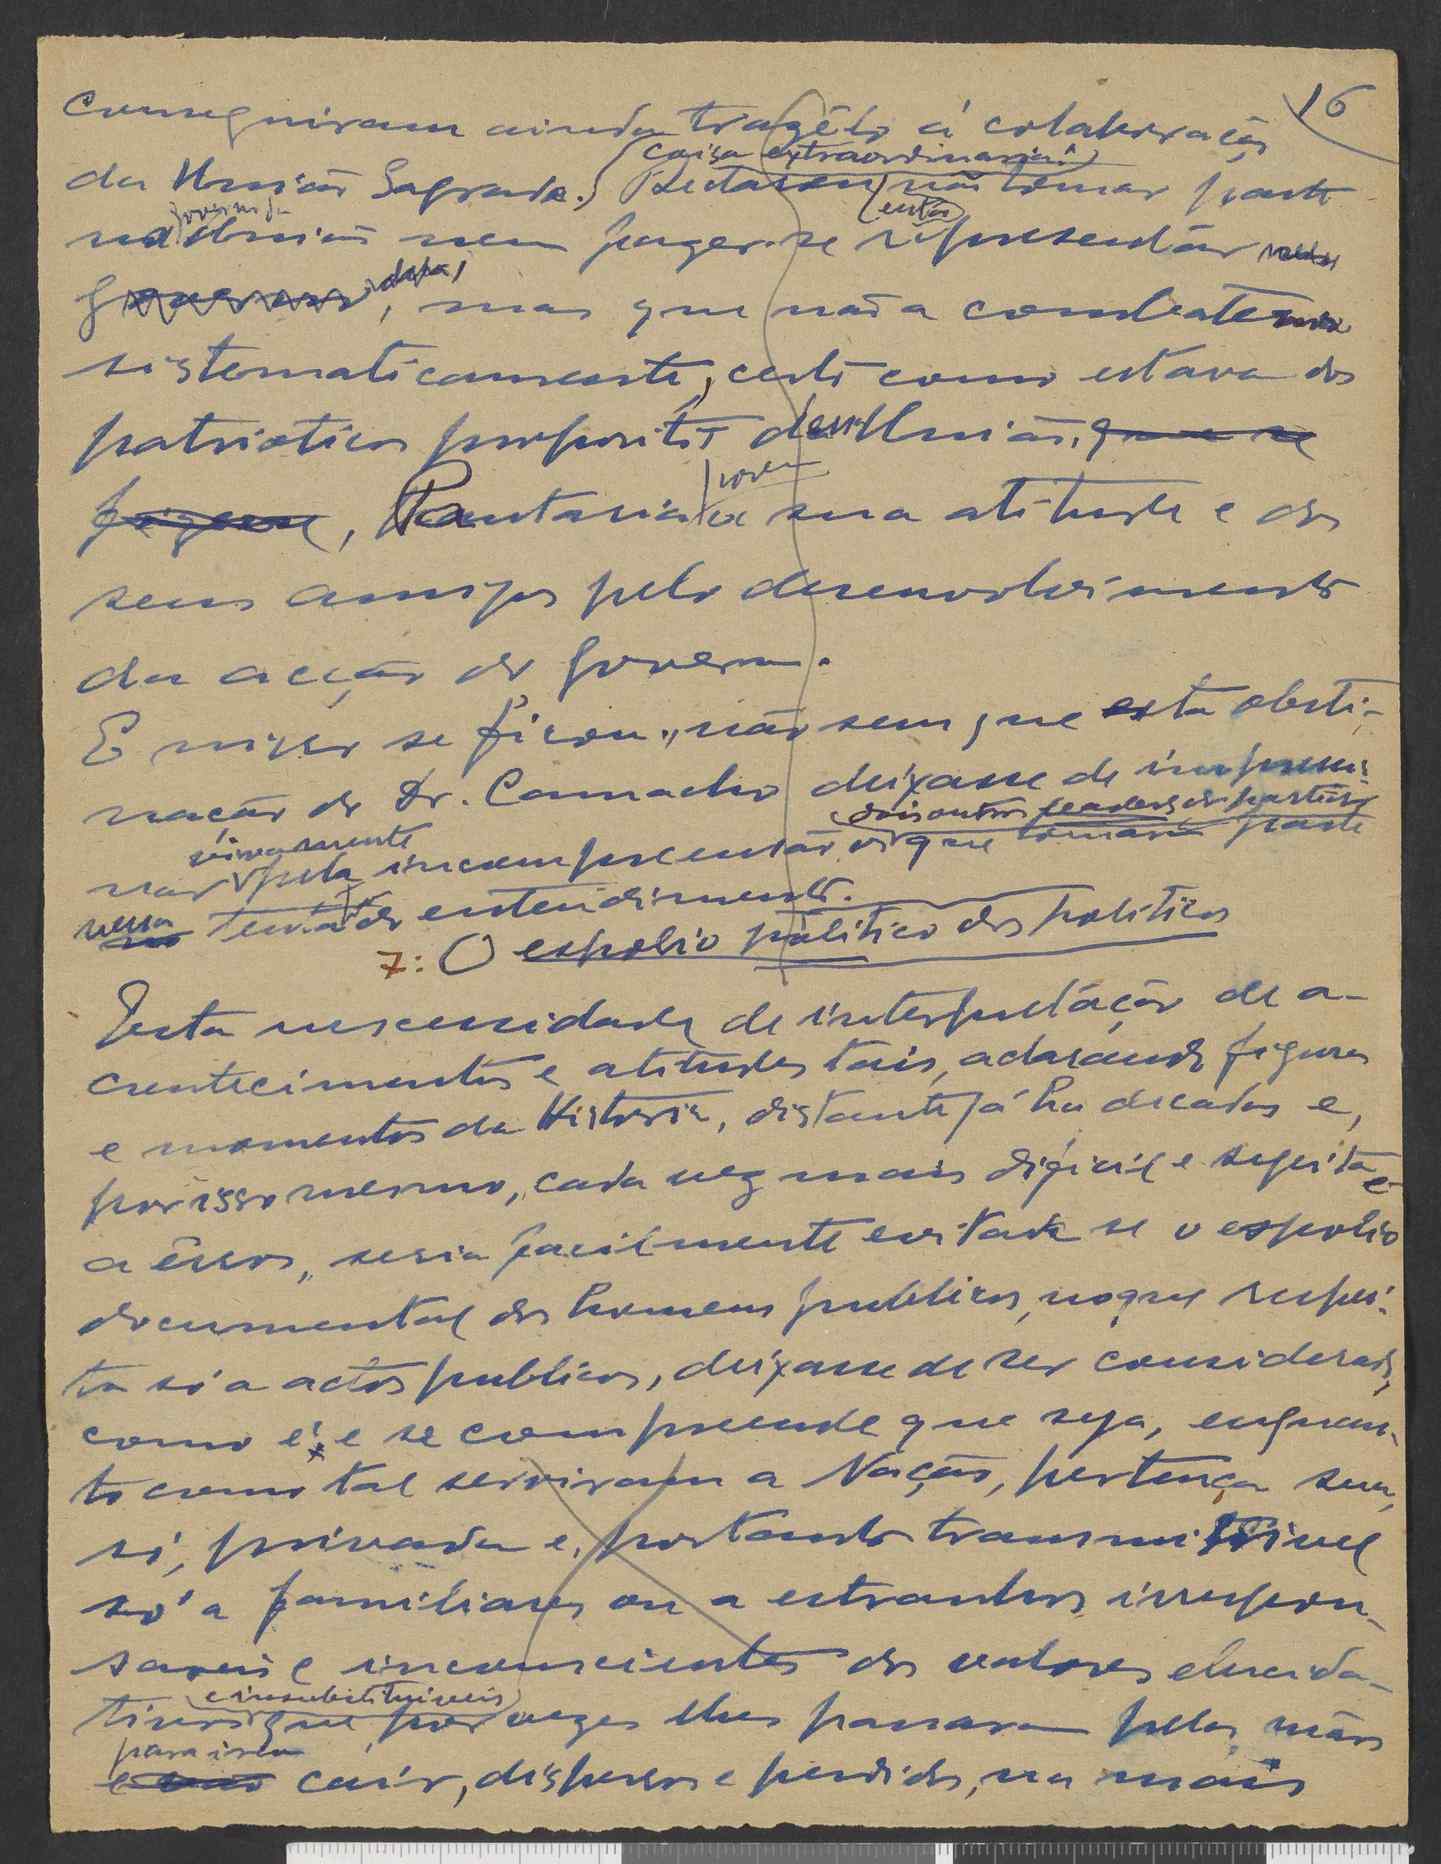 16
conseguiram ainda trazê-lo á colaboração
da União Sagrada. (coisa extraordinaria!)
Declarou não tomar parte
na governo da União nem fazer-se representar nesse
Governo, então mas que não a combateria
sistematicamente, certo como estava dos
patrioticos propositos dessa União, que se
fizesse, Pautaria a sua atitude e dos
seus amigos pelo desenvolvimento
da acção do Governo.
E nisso se ficou, não sem que esta obsti-
nação do Dr. Camacho deixasse de impressi-
nar vivamente pela incompreensão os dois outros leaders do partido que tomaram parte
nessa tentado entendimento.
7: O espolio politico dos politicos
Esta necessidade de interpretação de a-
contecimentos e atitudes tais, aclarando figuras
e momentos da Historia, distante já ha decadas e,
por isso mesmo, cada vez mais dificil e sujeita
a êrros, seria facilmente evitada se o espolio
documental dos homens publicos, no que respei-
ta só a actos publicos, deixasse de ser considerado,
como é, e se compreende que seja, enquan-
to como tal serviram a Nação, pertença sua,
só, privada e, portanto transmissivel
só a familiares ou a estranhos irrespon-
saveis e inconscientes dos valores elucida-
tivos e insubstituiveis que por vezes lhes passaram pelas mãos
para irem cair, dispersos e perdidos, na mais